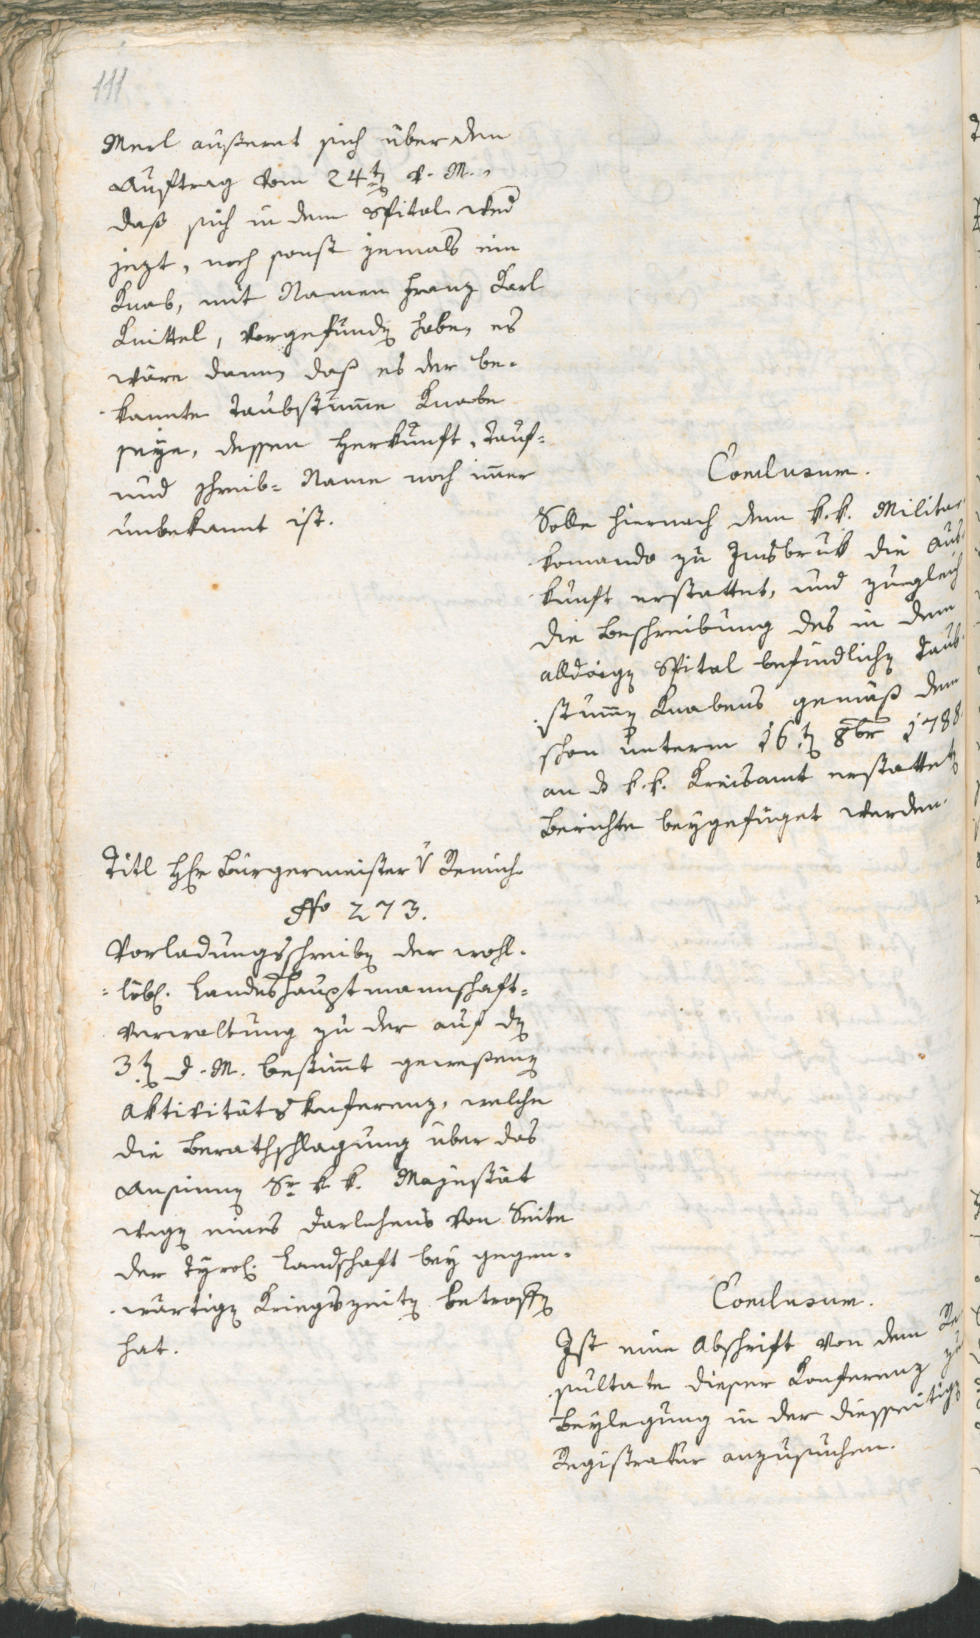 111
Merl äußeret sich über den
Auftrag vom 24t v. M.,
daß sich in dem Spital wed
jezt, noch sonst jemals ein
Knab, mit Namen Franz Karl
Knittel, vorgefunden habe, es
wäre dann, daß es der be-
kannte Taubstumme Knabe
seye, dessen Herkunft, Tauf-
und Schreib- Name noch immer
unbekannt ist.
Conclusum.
Solle hiernach dem k.k. Militar
komando zu Innsbruk die Aus
kunft erstattet, und zugleich
die Beschreibung des in dem
alldaigen Spital befindlichen Taub
stummen Knabens gemäß dem
schon unterm 16t 8br 1788
an d k.k. Kreisamt erstatteten
Berichte beygefüget werden.
Titl Hr Bürgermeister v Remich.
No 273.
Vorladungsschreiben der wohl-
löbl. Landeshauptmannschaft-
Verwaltung zu der auf den
3t d. M. bestimmt gewesenen
Aktivitäts Konferenz, welche
die Berathschlagung über das
Ansinnen Sr k.k. Majestät
wegen eines Darlehens von Seite
der Tyrol. Landschaft bey gegen-
wärtigen Kriegszeiten betroffen
hat.
Conclusum.
Ist eine Abschrift von dem Re
sultate dieser Konferenz zu
Beylegung in der diesseitigen
Registratur anzusuchen.